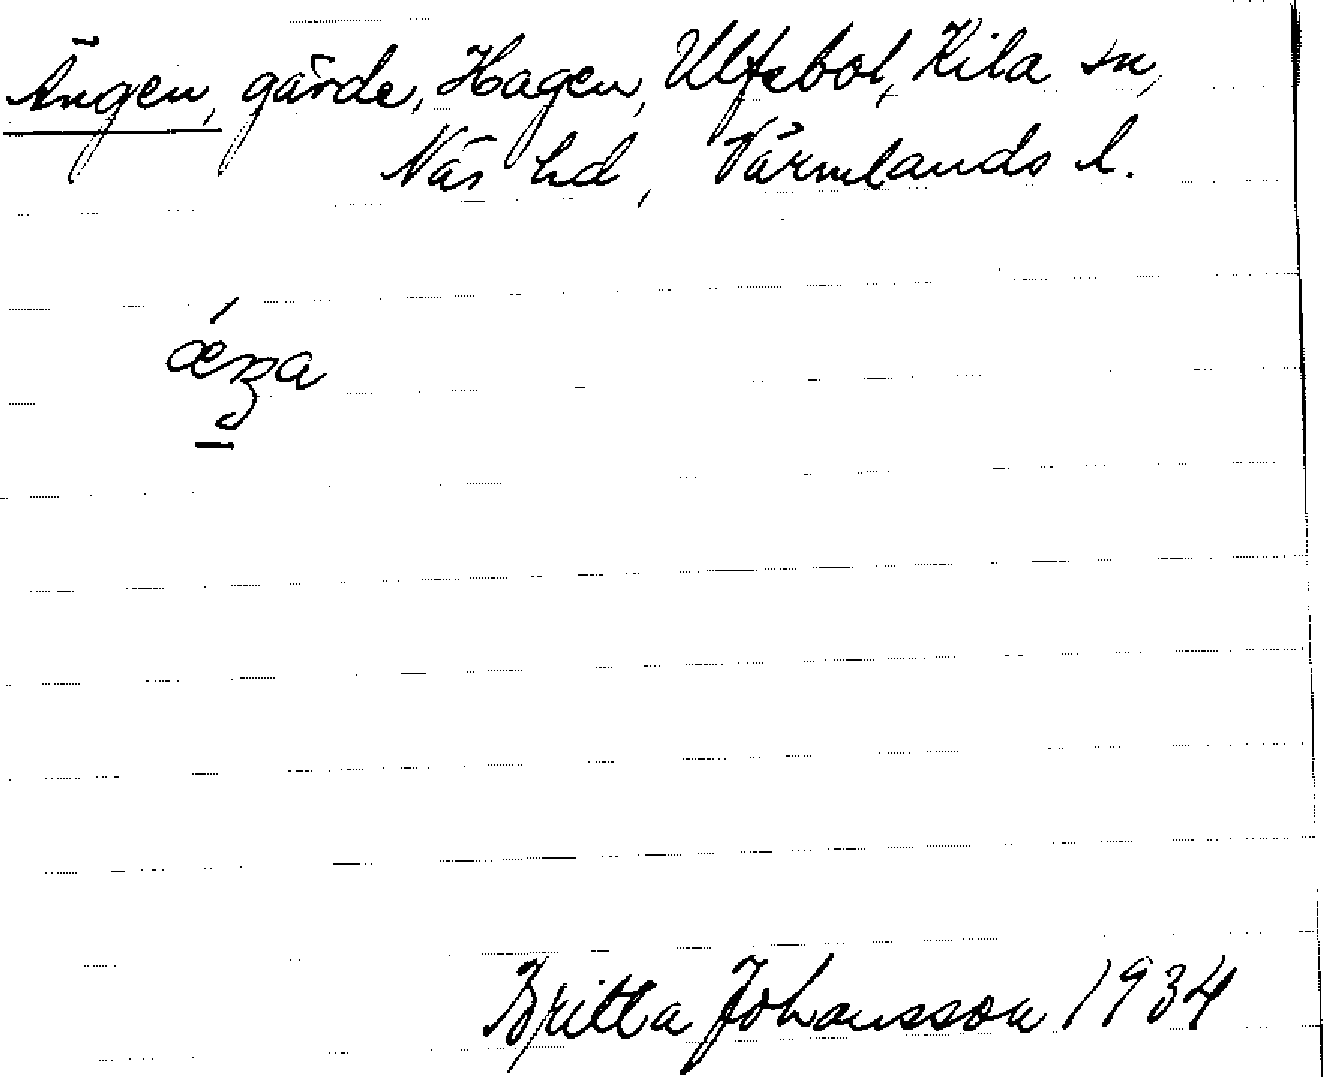 Ängen, gärde, Hagen, Ulfsbol, Kila sn,
Näs hd, Värmlands l.
Britta Johansson 1934